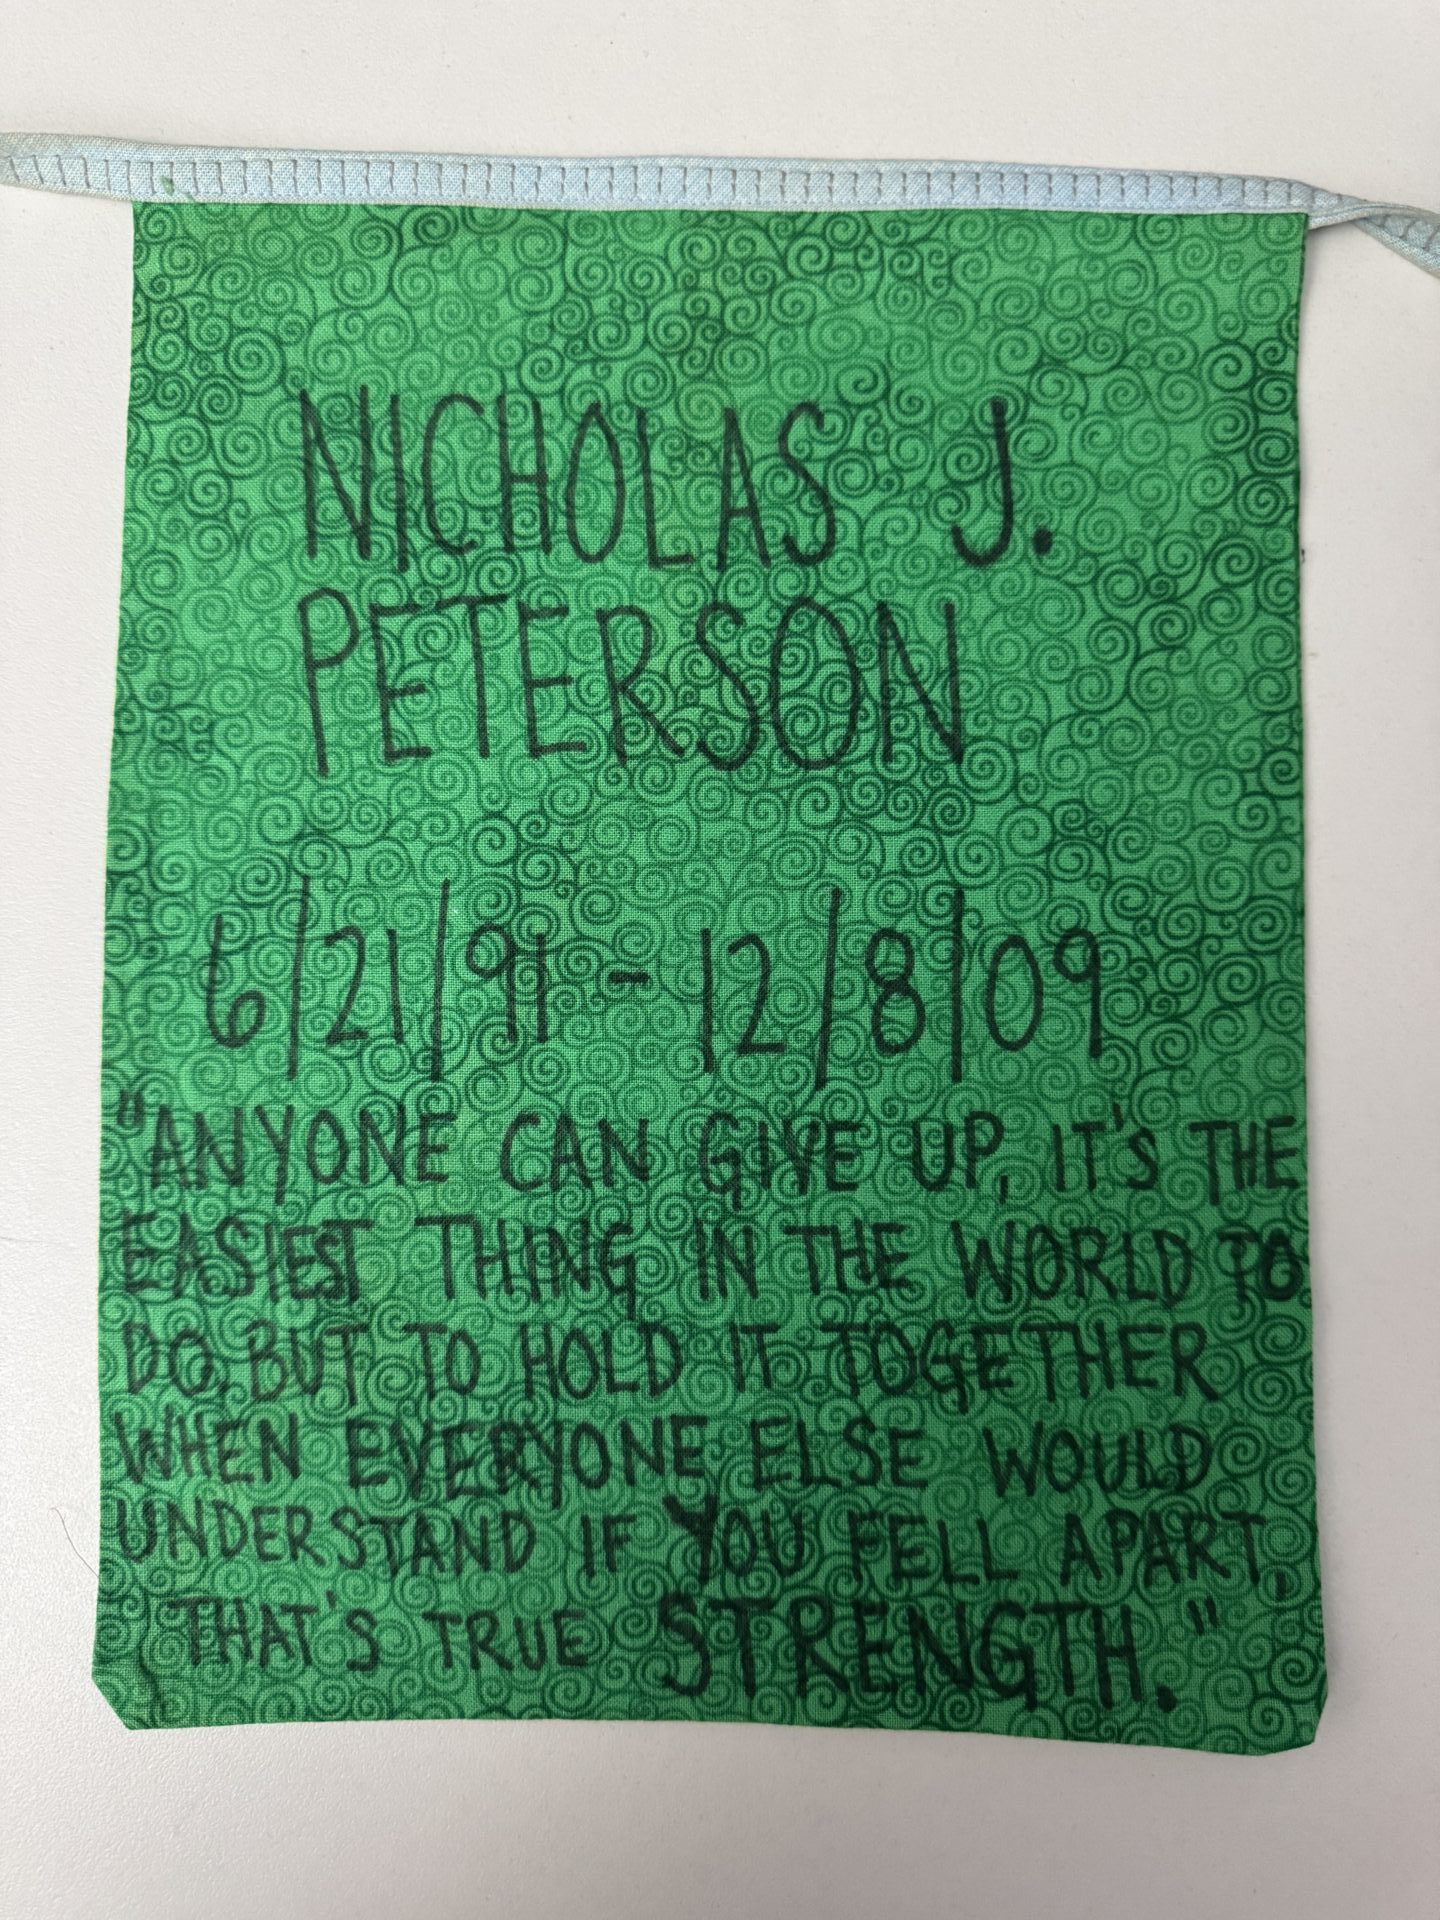 NICHOLAS J.
PETERSON
6/21/91 - 12/8/09
"ANYONE CAN GIVE UP, IT'S THE
EASIEST THING IN THE WORLD TO
DO, BUT TO HOLD IT TOGETHER
WHEN EVERYONE ELSE WOULD
UNDERSTAND IF YOU FELL APART,
THAT'S TRUE STRENGTH."